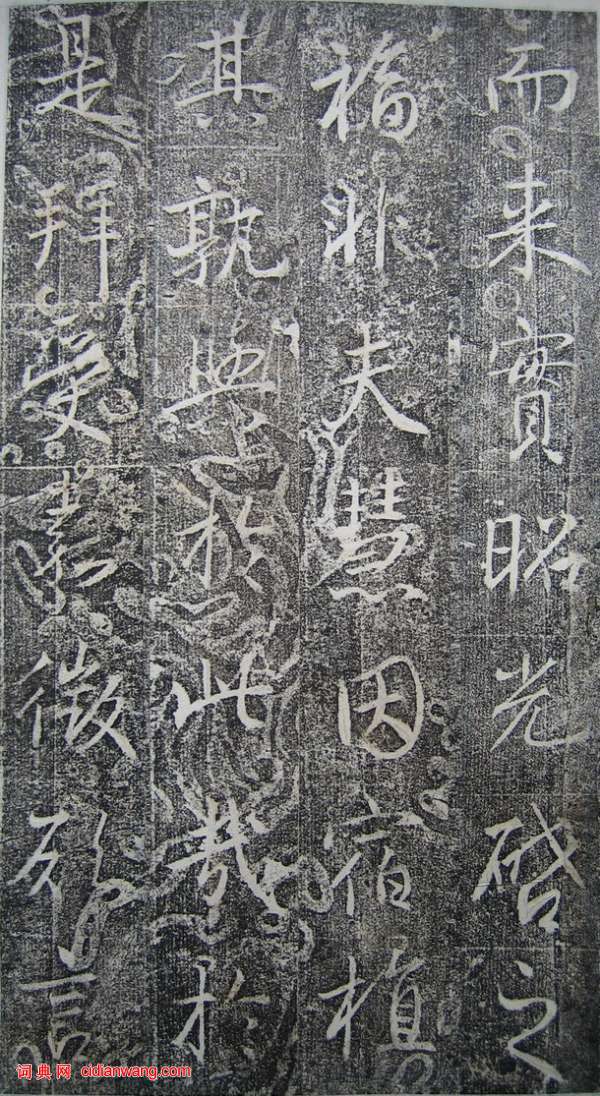 而来實昭光啓之
福非夫慧因宿植
其孰與於此哉於
是拜受徵言
词典网 cidianwang.com